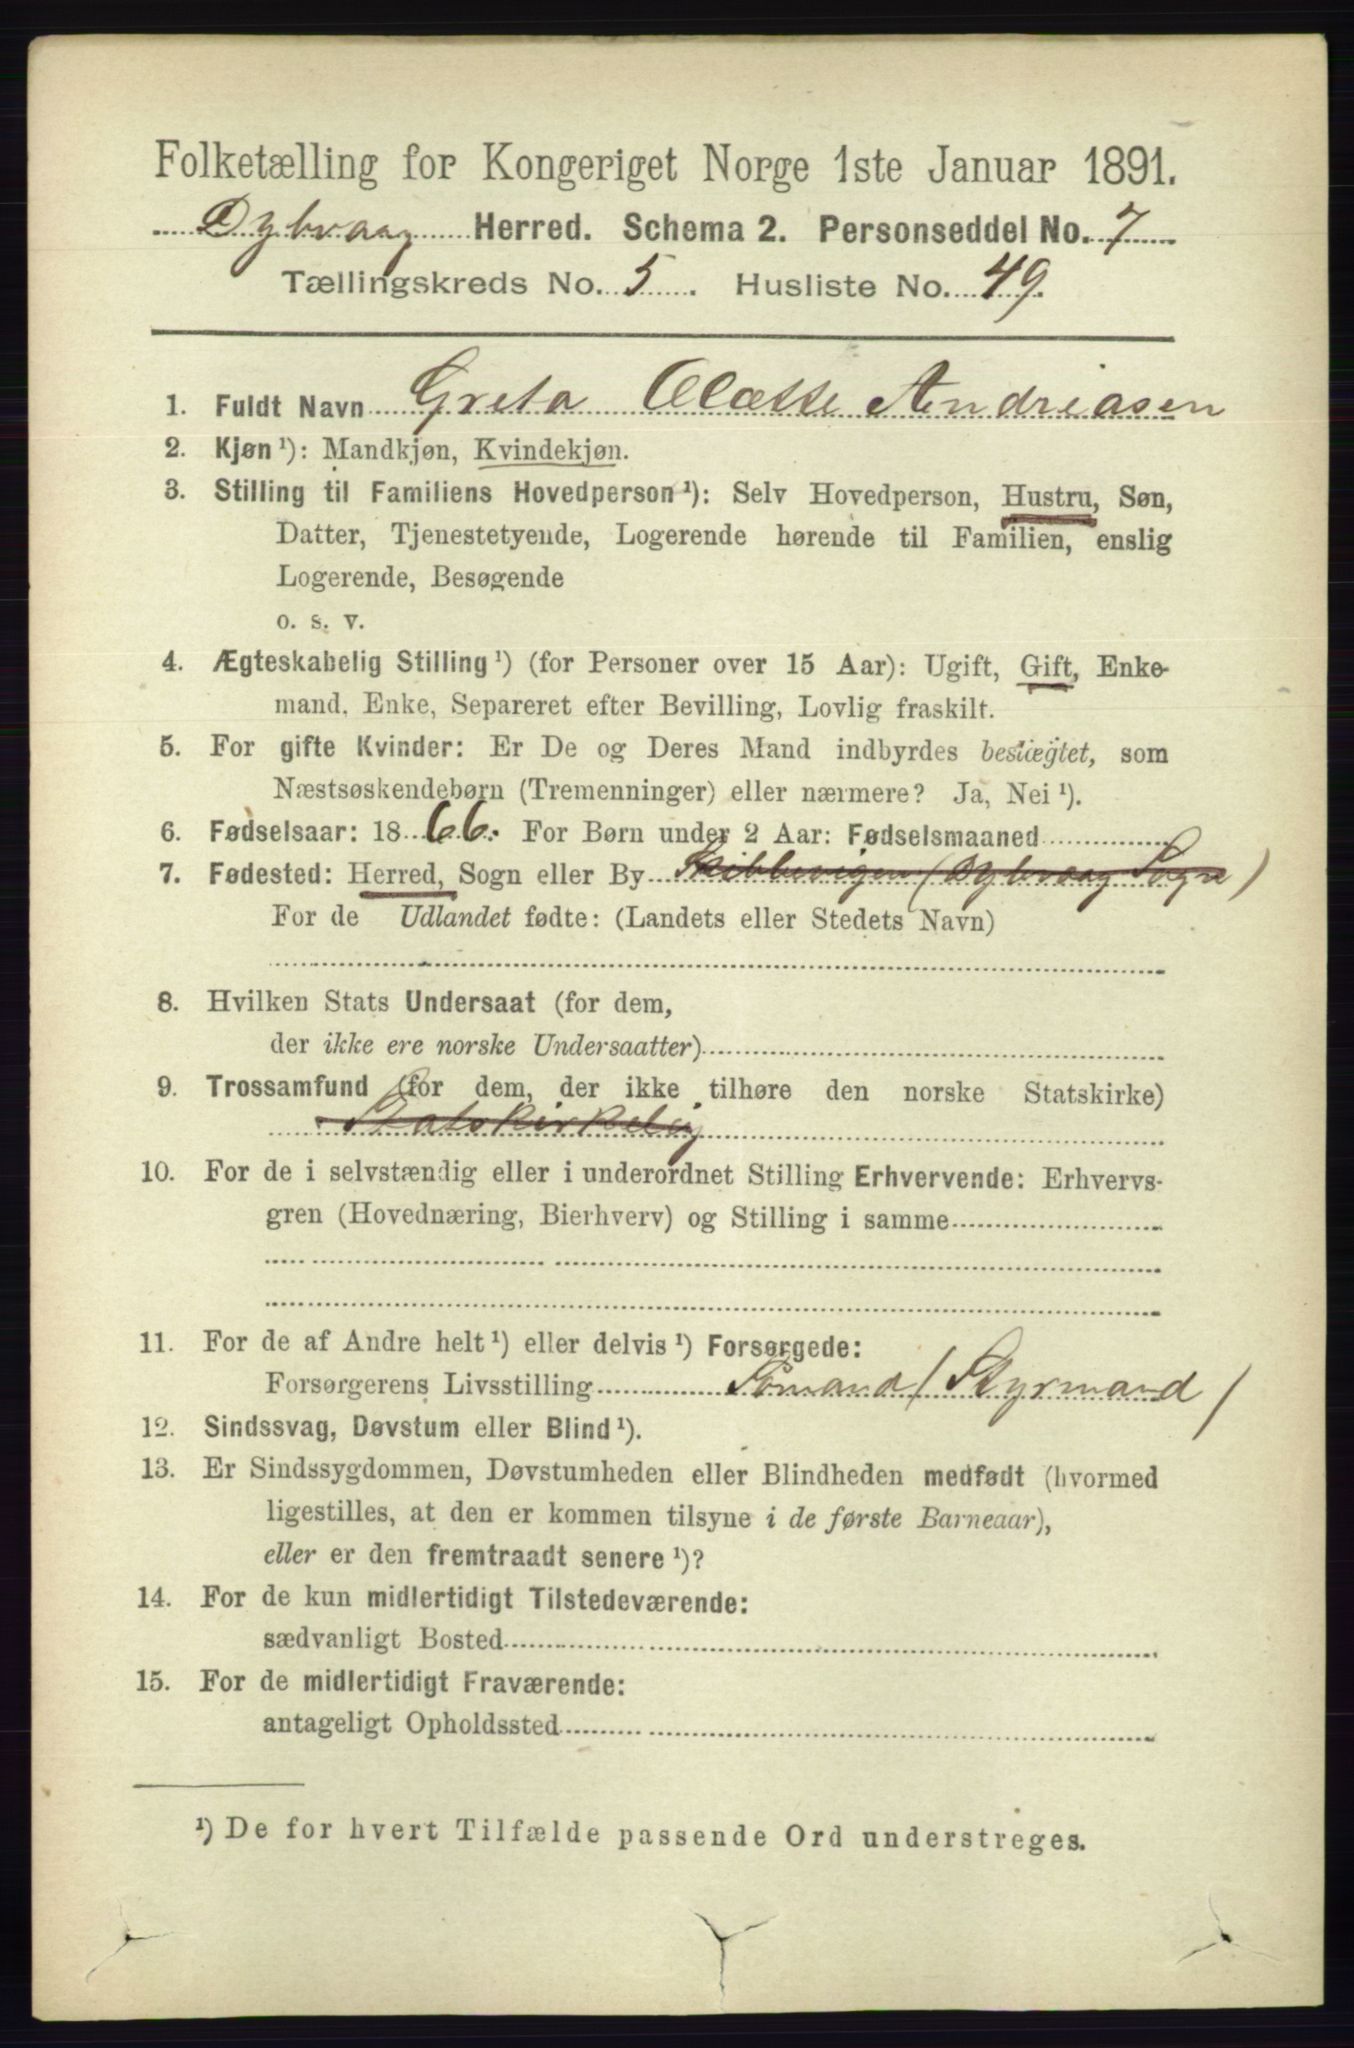 Folketælling for Kongeriget Norge 1ste Januar 1891.
Dybvaag Herred. Schema 2. Personseddel No. 7
Tællingskreds No. 5. Husliste No. 49.
1. Fuldt Navn Greta Olette Andreasen
2. Kjøn ¹): Mandkjøn, Kvindekjøn.
3. Stilling til Familiens Hovedperson ¹): Selv Hovedperson, Hustru, Søn,
Datter, Tjenestetyende, Logerende hørende til Familien, enslig
Logerende, Besøgende
o. s. v.
4. Ægteskabelig Stilling ¹) (for Personer over 15 Aar): Ugift, Gift, Enke-
mand, Enke, Separeret efter Bevilling, Lovlig fraskilt.
5. For gifte Kvinder: Er De og Deres Mand indbyrdes beslægtet, som
Næstsøskendebørn (Tremenninger) eller nærmere? Ja, Nei ¹).
6. Fødselsaar: 1866. For Børn under 2 Aar: Fødselsmaaned
7. Fødested: Herred, Sogn eller By Skibbevigen (Dybvaag Sogn)
For de Udlandet fødte: (Landets eller Stedets Navn)
8. Hvilken Stats Undersaat (for dem,
der ikke ere norske Undersaatter)
9. Trossamfund (for dem, der ikke tilhøre den norske Statskirke)
Statskirkelig
10. For de i selvstændig eller i underordnet Stilling Erhvervende: Erhvervs-
gren (Hovednæring, Bierhverv) og Stilling i samme
11. For de af Andre helt ¹) eller delvis ¹) Forsørgede:
Forsørgerens Livsstilling Sømand / Styrmand /
12. Sindssvag, Døvstum eller Blind ¹).
13. Er Sindssygdommen, Døvstumheden eller Blindheden medfødt (hvormed
ligestilles, at den er kommen tilsyne i de første Barneaar),
eller er den fremtraadt senere ¹)?
14. For de kun midlertidigt Tilstedeværende:
sædvanligt Bosted
15. For de midlertidigt Fraværende:
antageligt Opholdssted
¹) De for hvert Tilfælde passende Ord understreges.